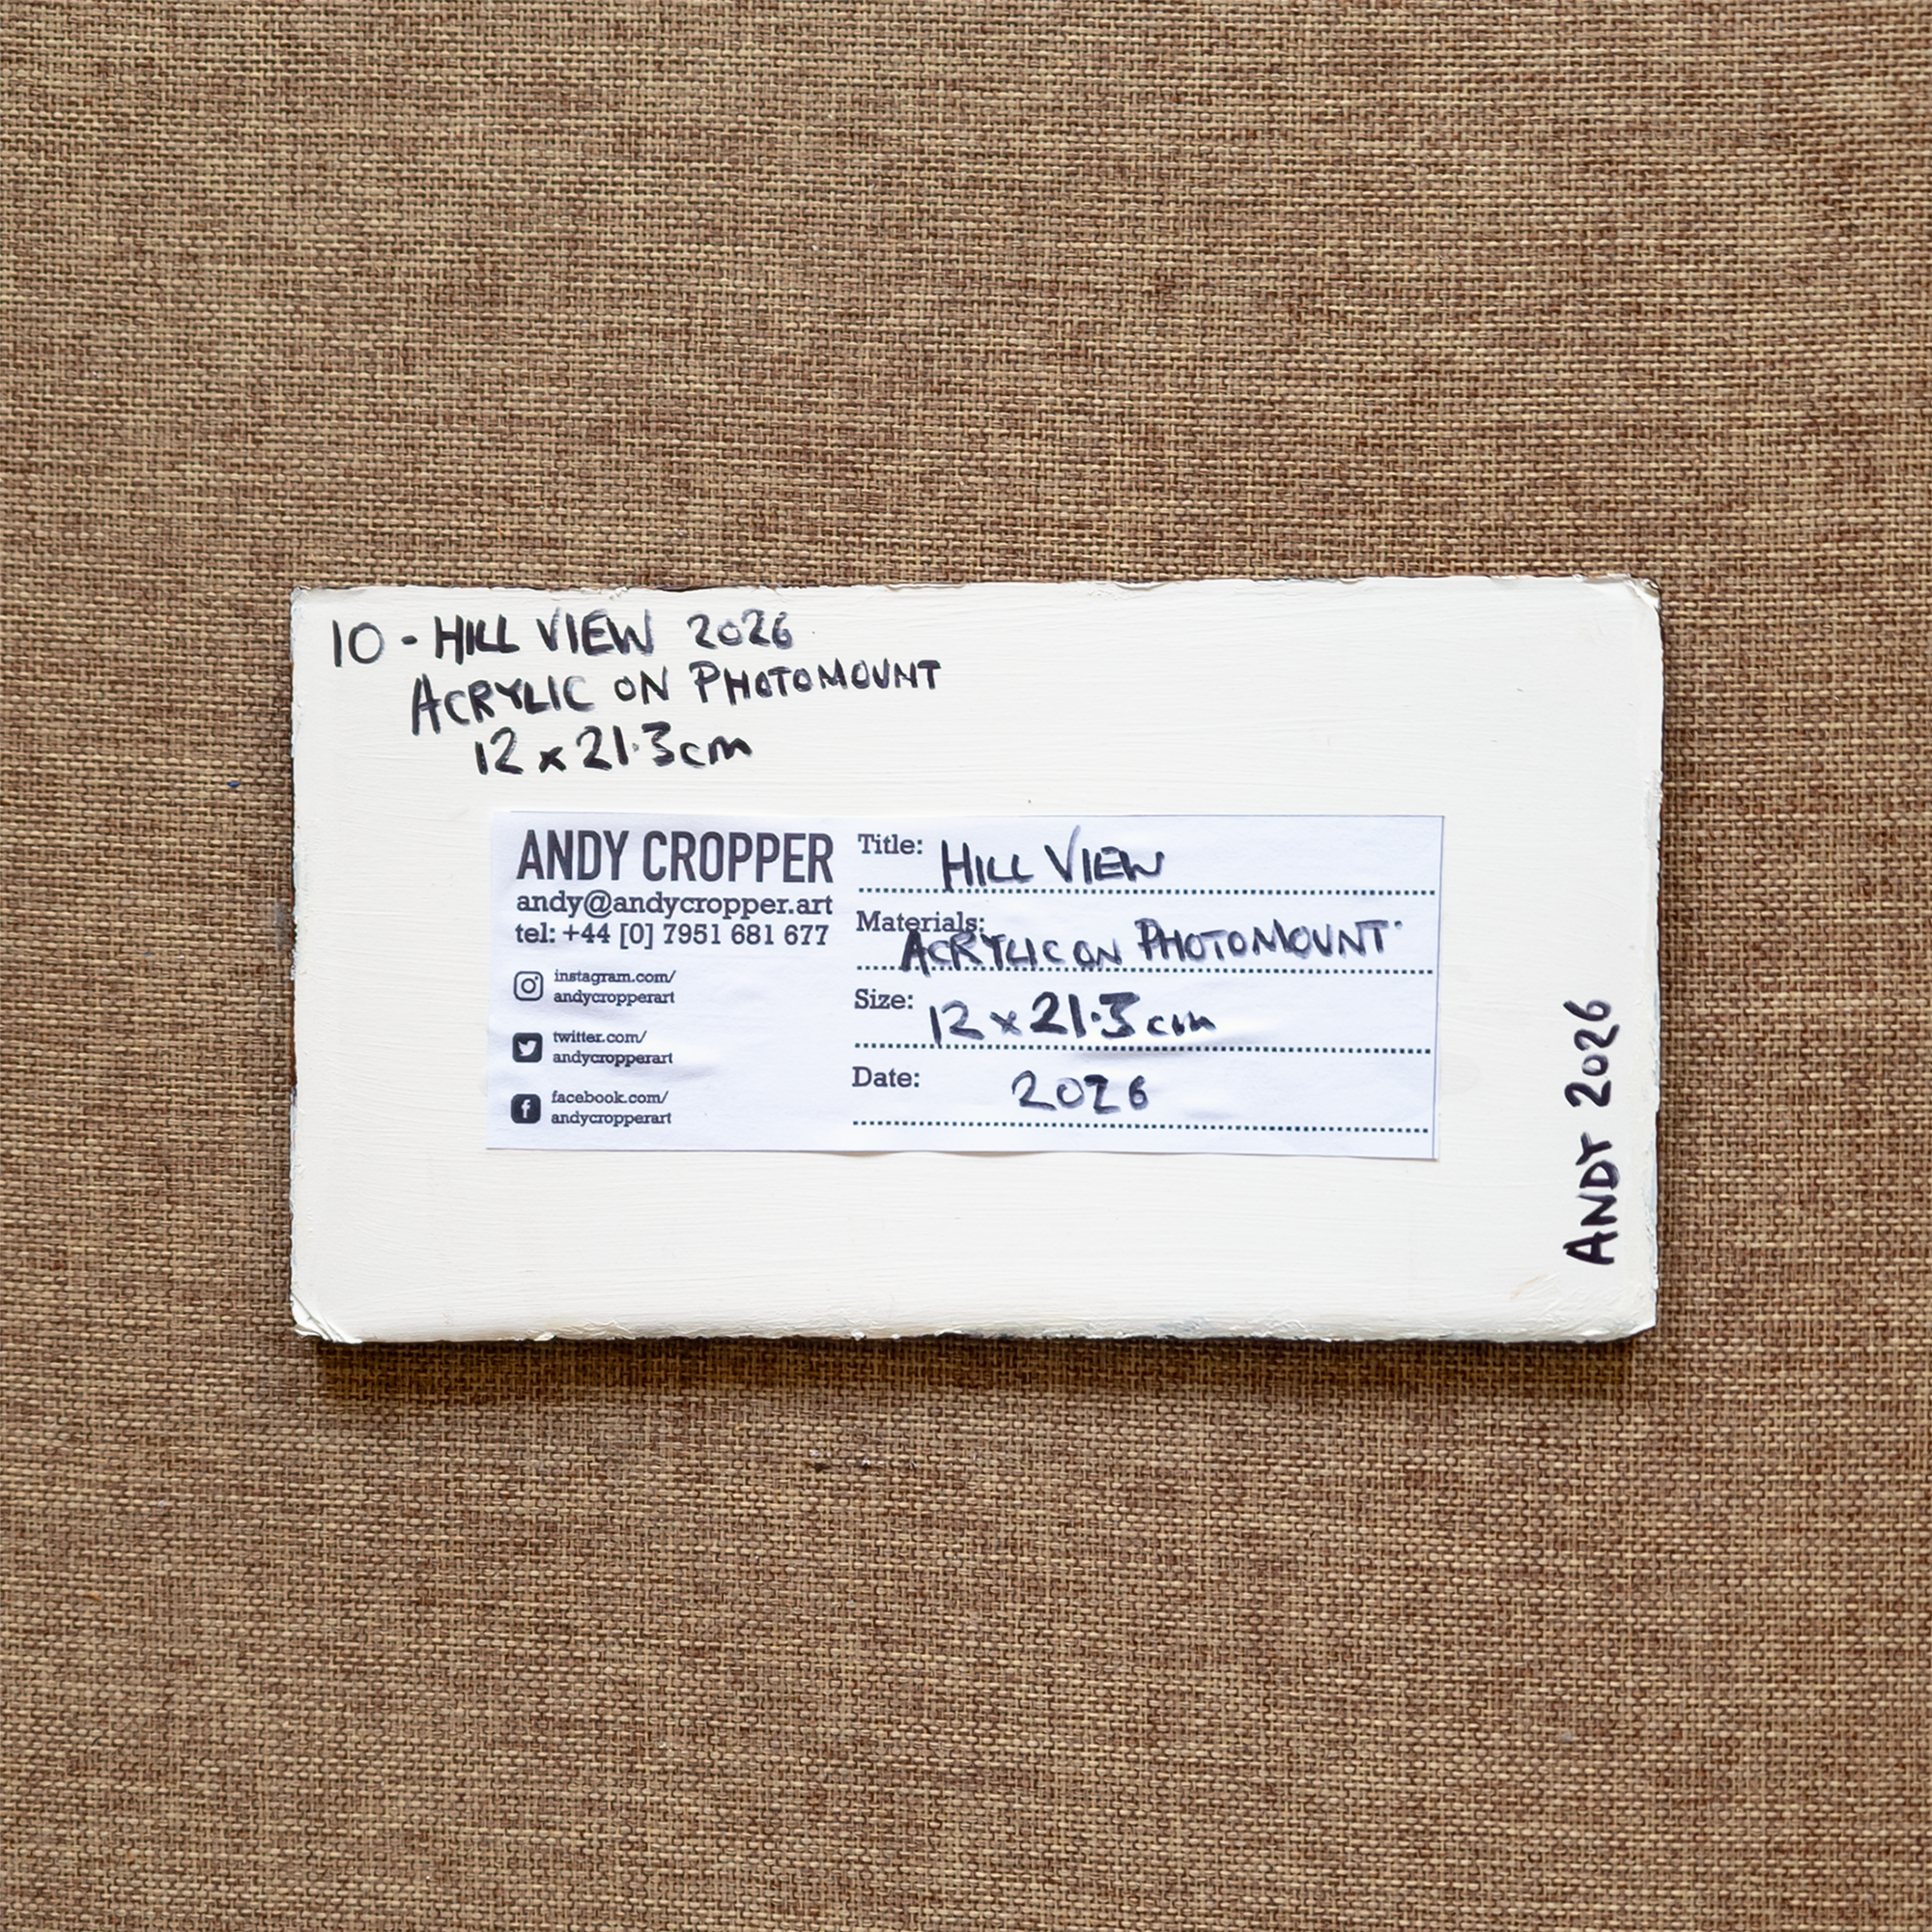 10 - HILL VIEW 2026
ACRYLIC ON PHOTOMOUNT
12 x 21.3cm
ANDY CROPPER
andy@andycropper.art
tel: +44 [0] 7951 681 677
instagram.com/
andycropperart
twitter.com/
andycropperart
facebook.com/
andycropperart
Title: HILL VIEW
Materials: ACRYLIC ON PHOTOMOUNT
Size: 12 x 21.3 cm
Date: 2026
ANDY 2026